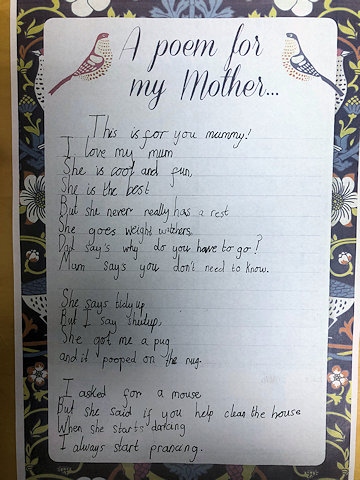 A poem for
my Mother...
This is for you mummy!
I love my mum
She is cool and fun,
She is the best
But she never really has a rest
She goes weight witchers,
Dad say's why do you have to go?
Mum say's you don't need to know.
She says tidy up
But I say shutup,
She got me a pug
and it pooped on the rug.
I asked for a mouse
But she said if you help clean the house
When she starts dancing
I always start prancing.